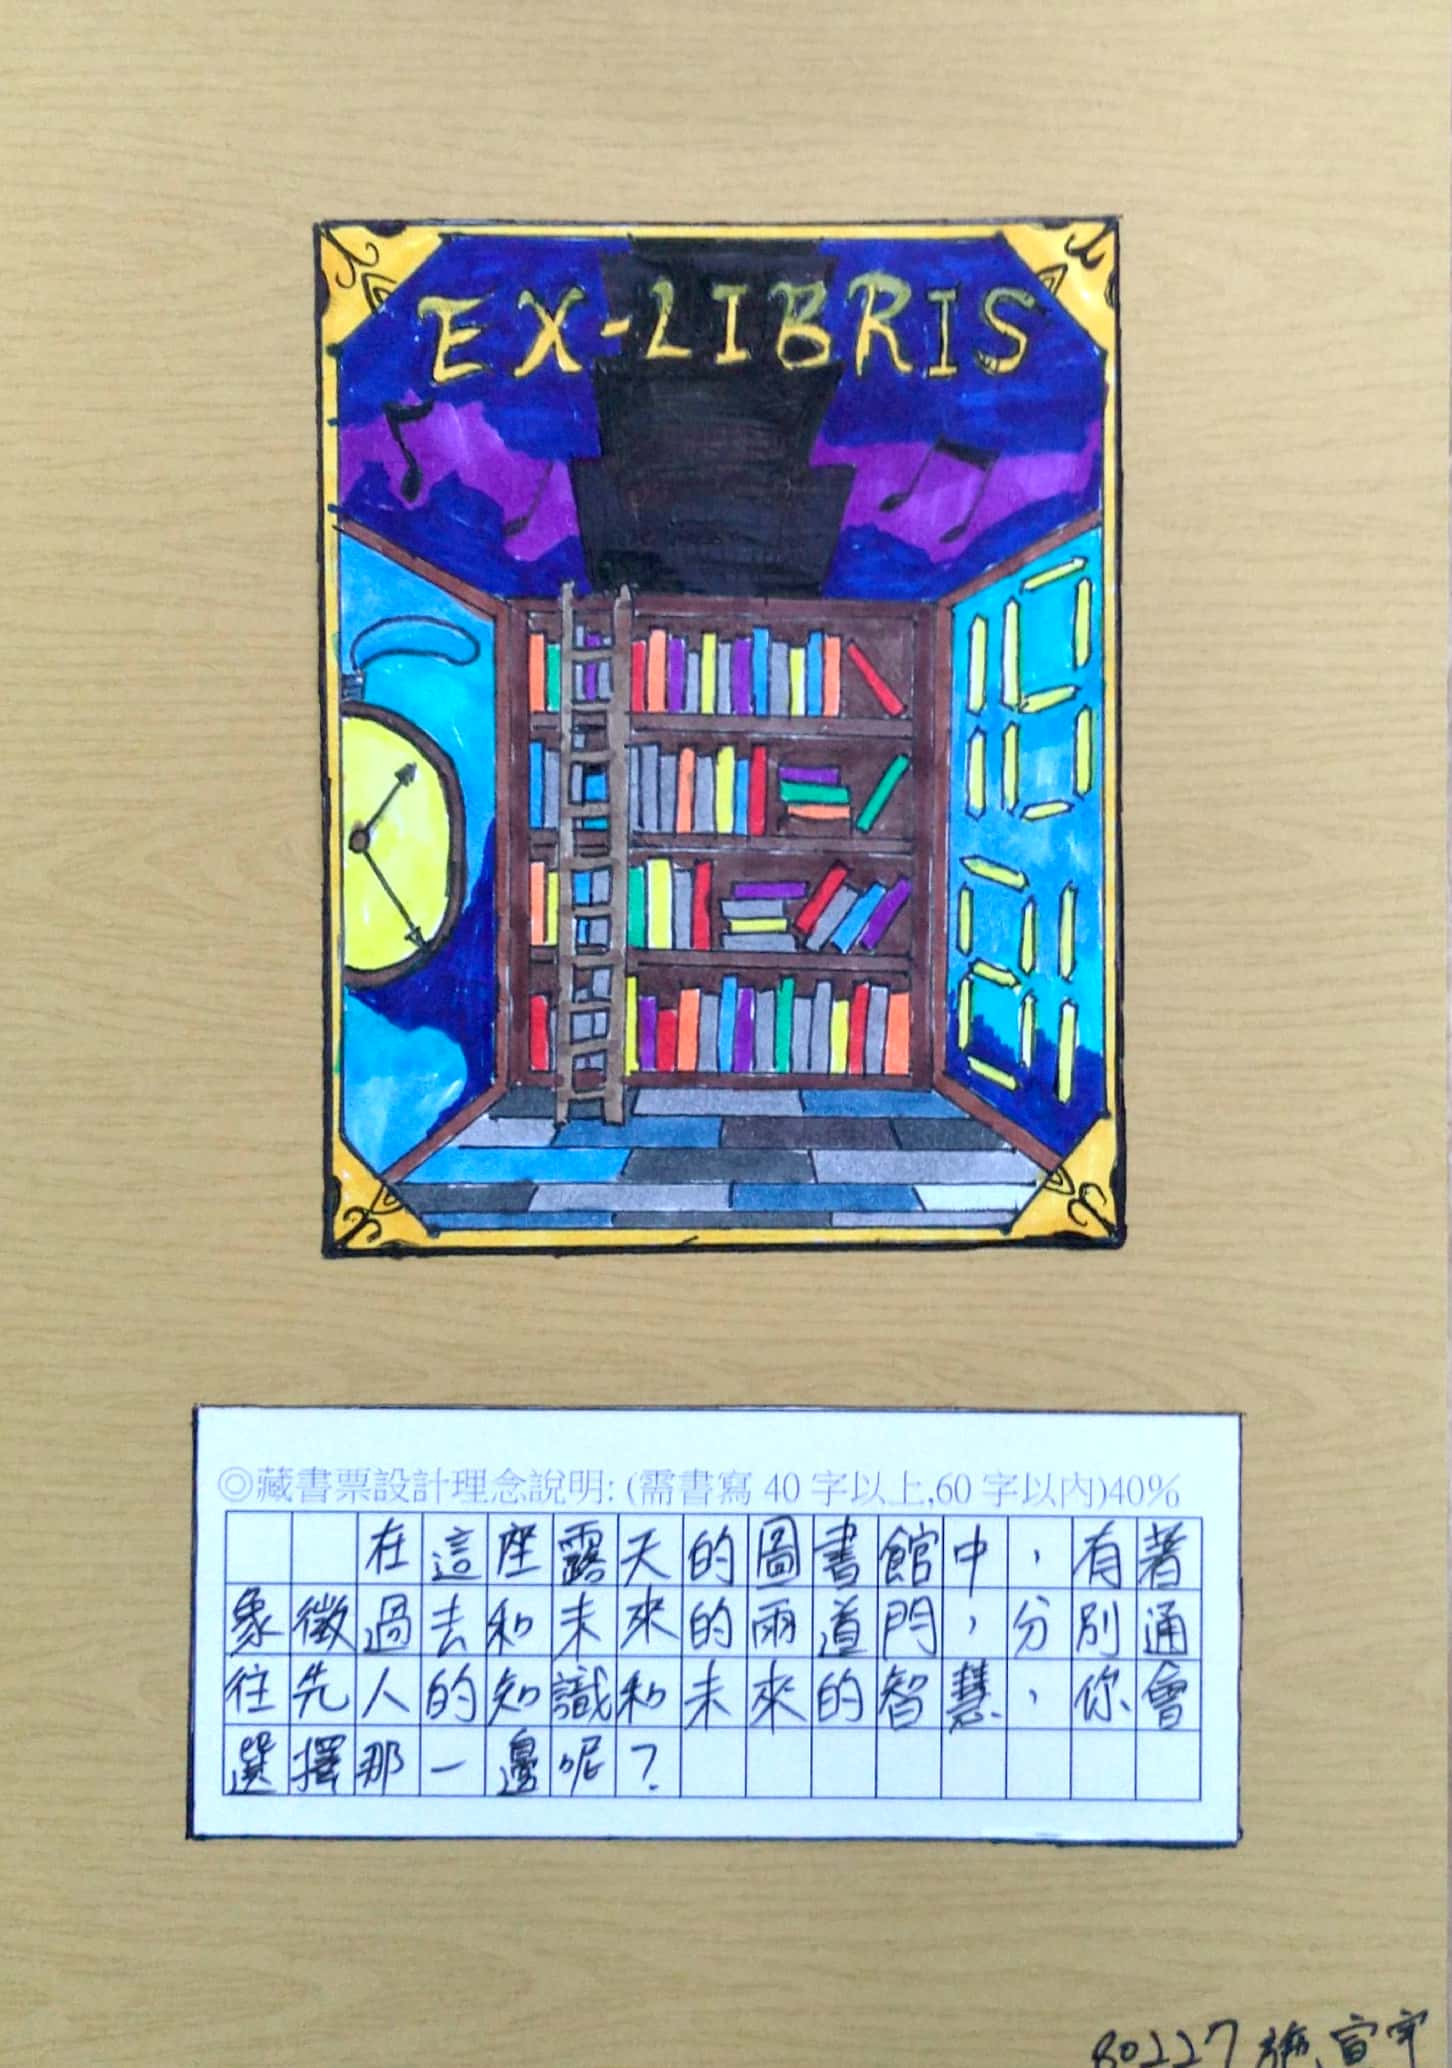 EX-LIBRIS
◎藏書票設計理念說明: (需書寫 40 字以上,60 字以內)40%
在這座露天的圖書館中，有著
象徵過去和未來的兩道門，分別通
往先人的知識和未來的智慧，你會
選擇那一邊呢？
80227